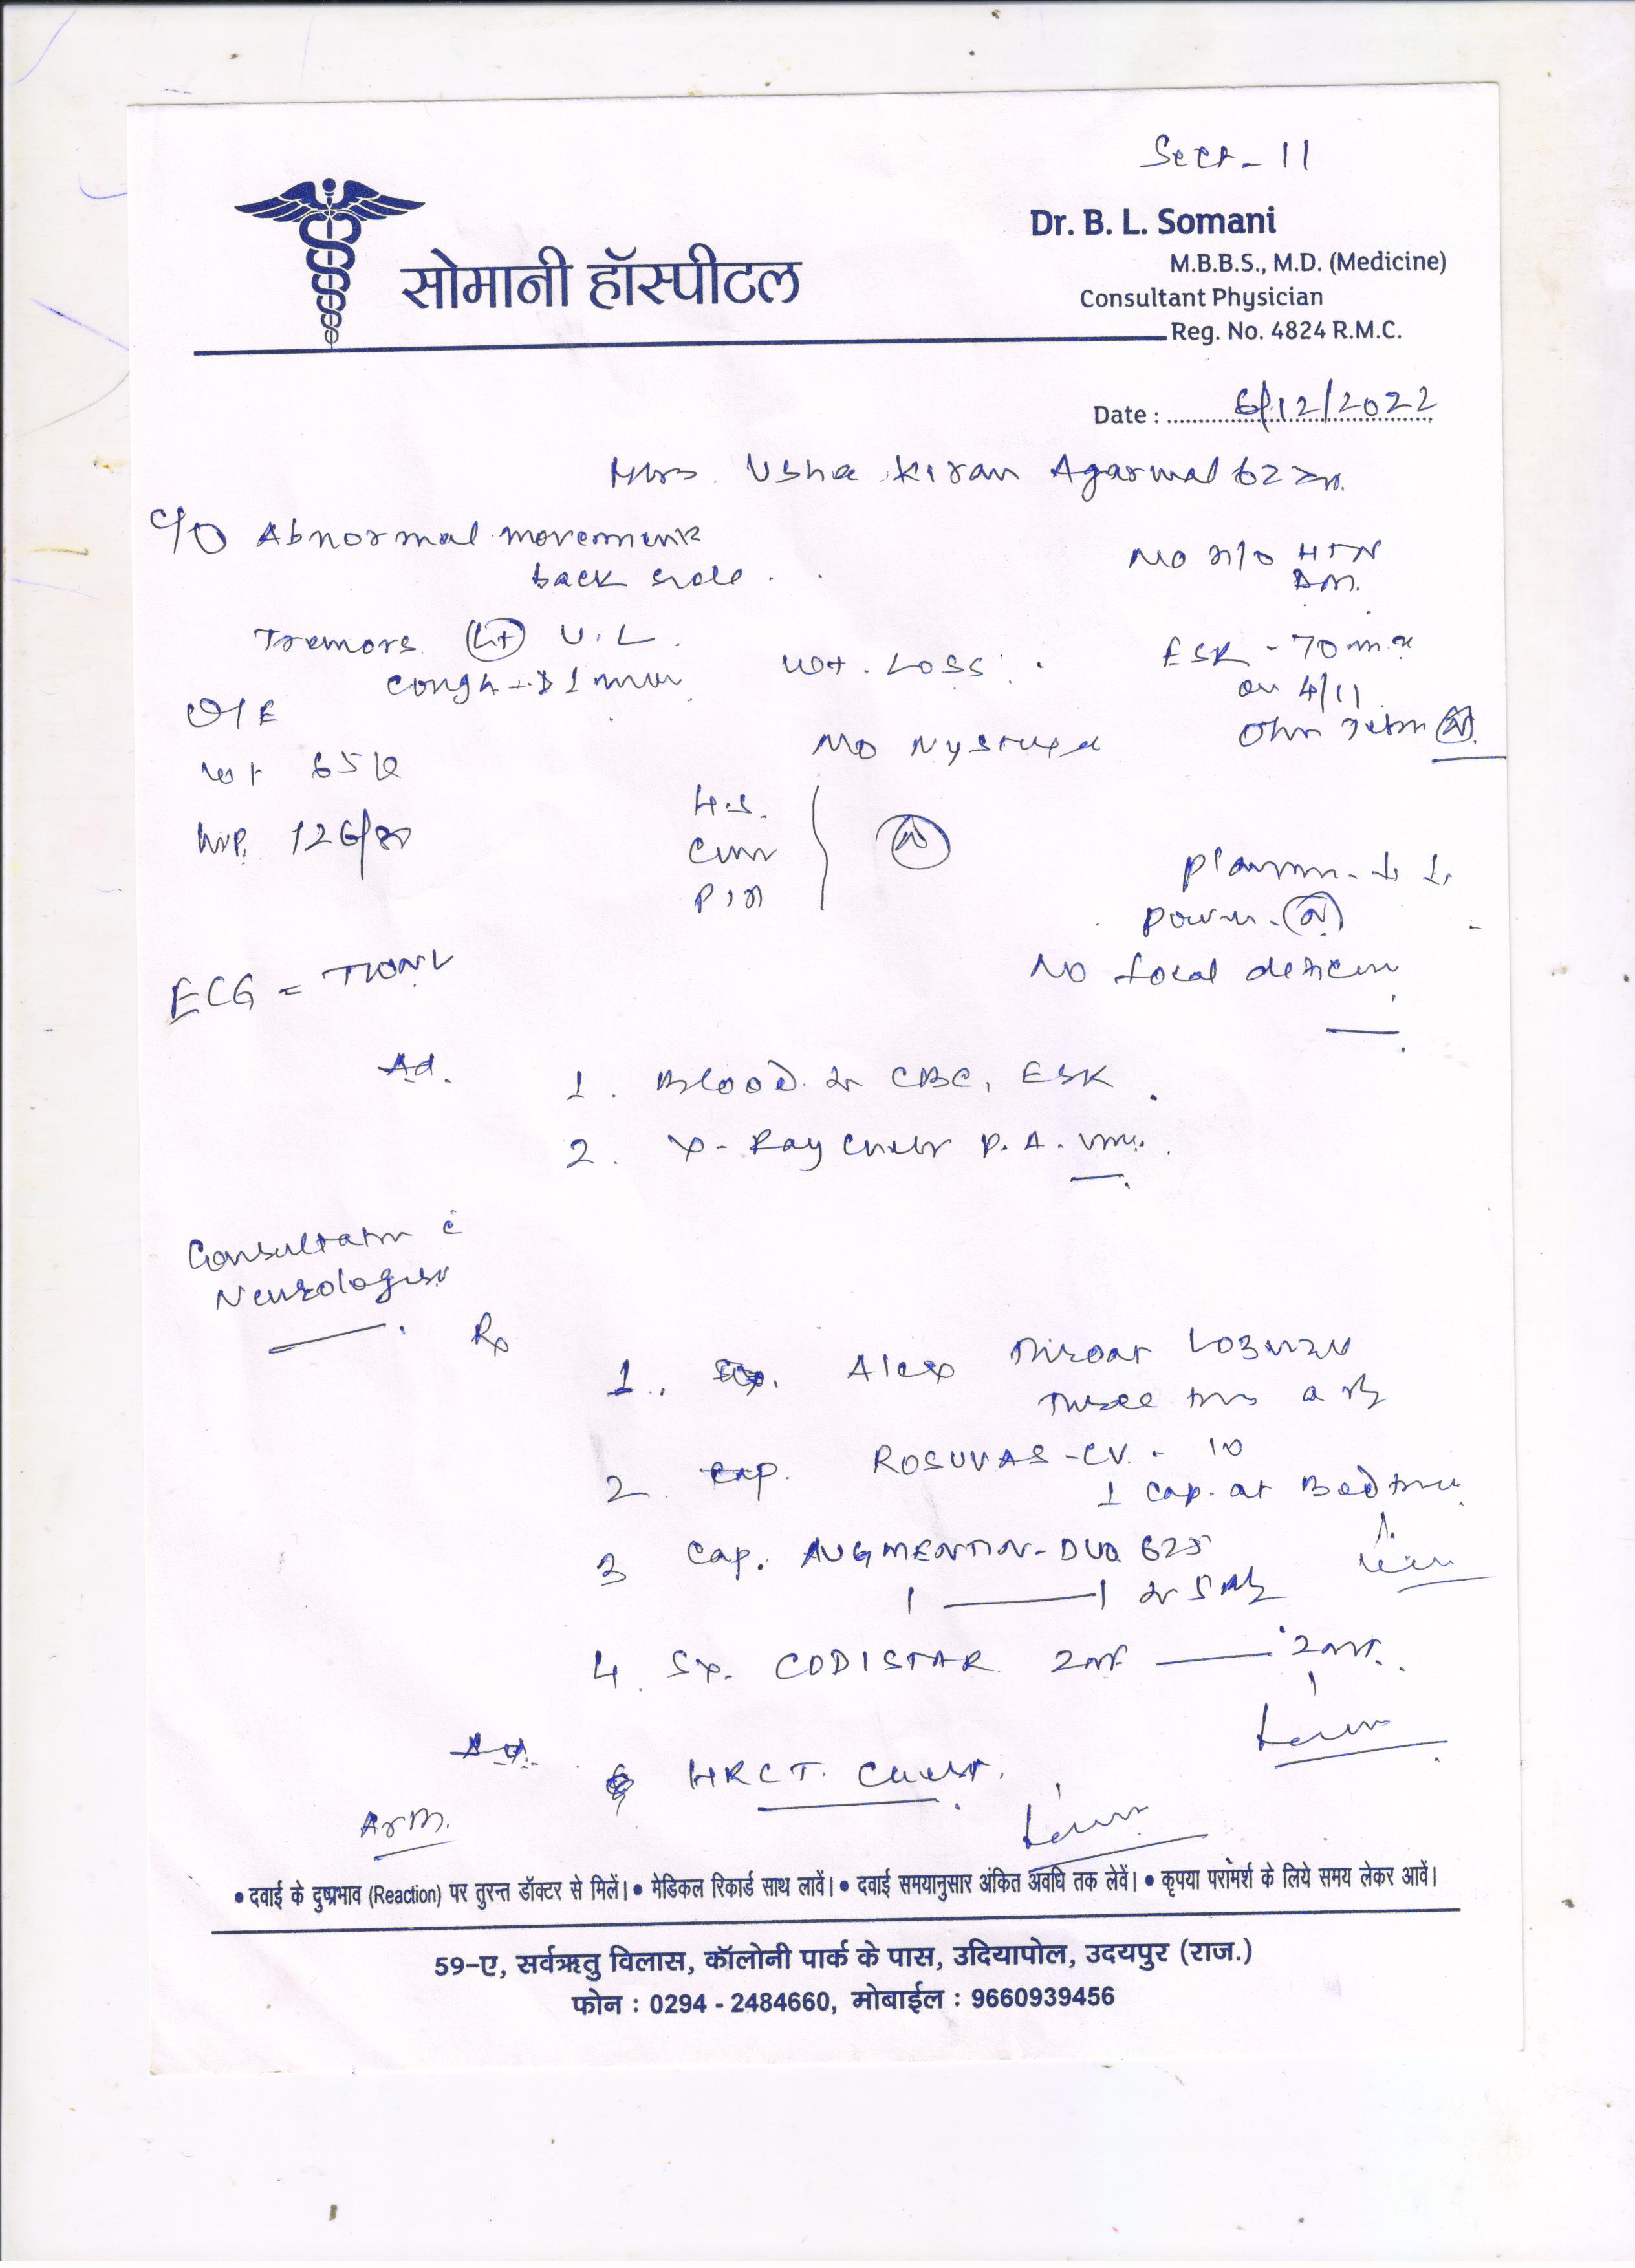 Sect - 11
Dr. B. L. Somani
M.B.B.S., M.D. (Medicine)
Consultant Physician
Reg. No. 4824 R.M.C.
सोमानी हॉस्पीटल
Date : 6/12/2022
Mrs. Usha Kiran Agarwal 62
C/O Abnormal movements
back side.
No H/O HTN
DM.
Tremors (Lt) U.L.
cough
Wt. Loss
ESR - 70
on 4/11
O/E
Wt 65
No Nystagmus
B.P. 126/80
H.S.
P/A
(N)
Power - (N)
No focal deficit
ECG =
Ad.
1. Blood for CBC, ESR.
2. X-Ray Chest P.A. view.
Consultation c̄
Neurologist
Rx
1. Alex Throat Lozenges
Three times a day
2. Cap. ROSUVAS-CV - 10
1 Cap. at Bed time
3 Cap. AUGMENTIN-DUO 625
1 —— 1 for 5 days
4. Sy. CODISTAR 2 —— 2
Ad.
HRCT. Chest.
• दवाई के दुष्प्रभाव (Reaction) पर तुरन्त डॉक्टर से मिलें। • मेडिकल रिकार्ड साथ लावें। • दवाई समयानुसार अंकित अवधि तक लेवें। • कृपया परामर्श के लिये समय लेकर आवें।
59-ए, सर्वऋतु विलास, कॉलोनी पार्क के पास, उदियापोल, उदयपुर (राज.)
फोन : 0294 - 2484660, मोबाईल : 9660939456